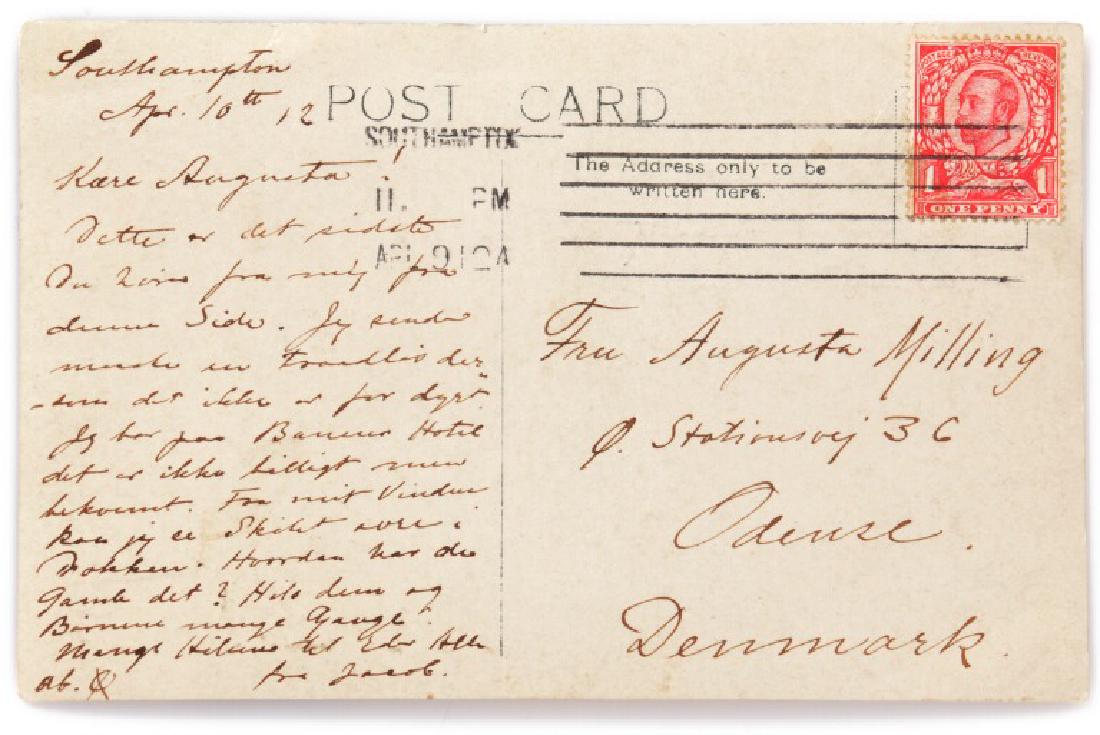 Southampton
Apr. 10th 12
Kære Augusta!
Dette er det sidste
Du hører fra mig fra
denne Side. Jeg sender
maaske en Traadløs der-
-som det ikke er for dyrt.
Jeg bor paa Hotel
det er ikke billigt men
bekvemt. Fra mit Vindue
kan jeg se Skibet være i
Dokken. Hvordan har de
Gamle det? Hils dem og
Børnene mange Gange!
Mange Hilsner til Eder Alle
fra Jacob.
POST CARD
SOUTHAMPTON
11. PM
AP 9 12A
The Address only to be
written here.
POSTAGE REVENUE
1 1
ONE PENNY
Fru Augusta Milling
Ø. Stationsvej 36
Odense.
Denmark.